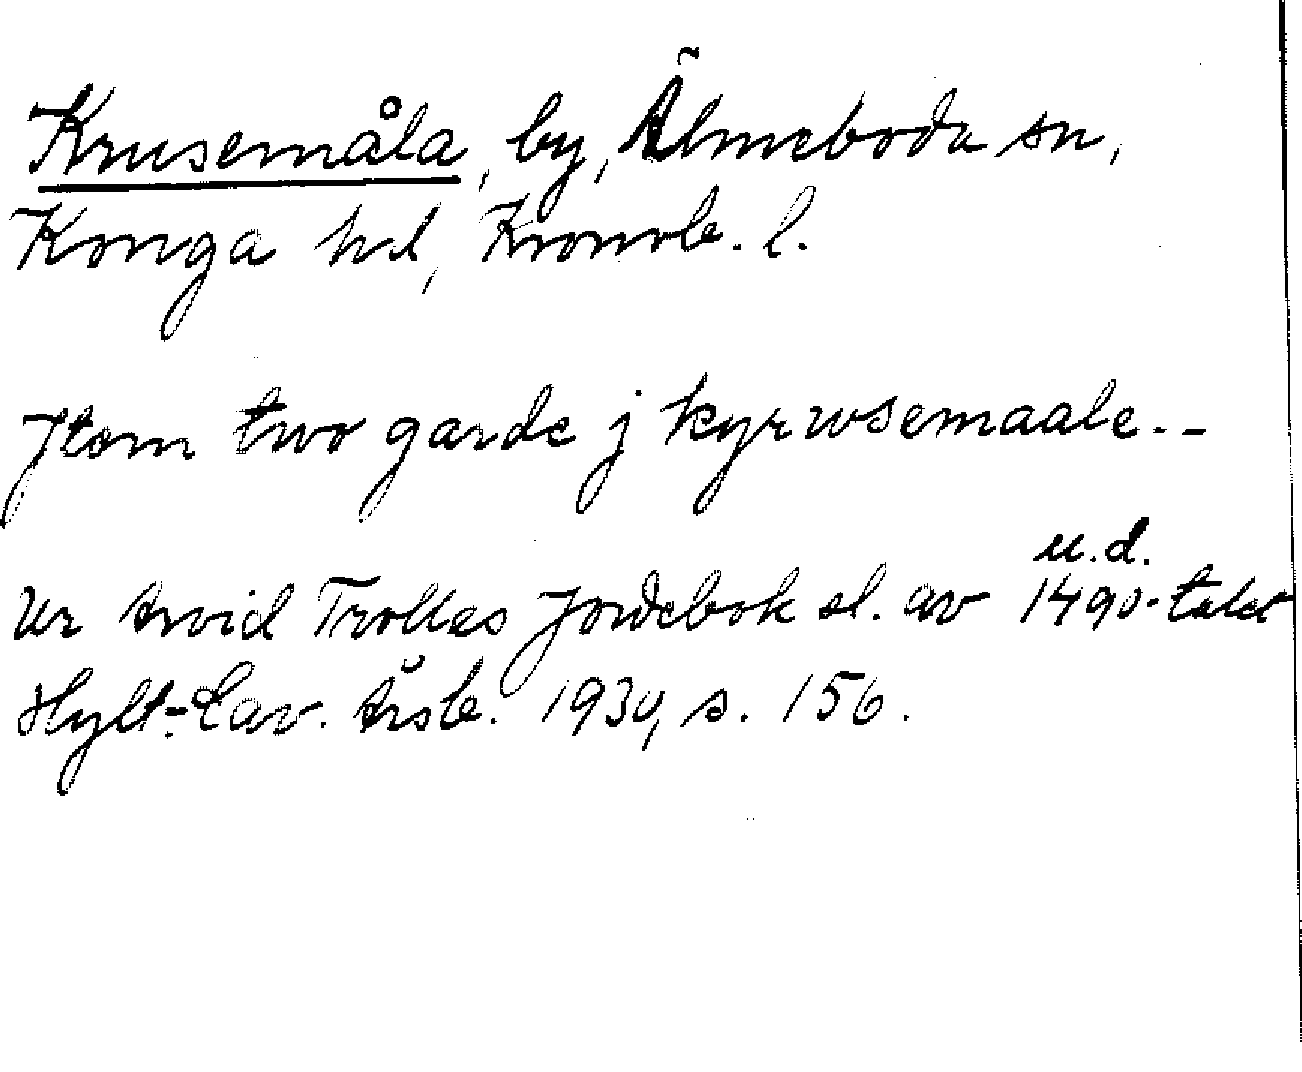 Krusemåla, by, Älmeboda sn,
Konga hd, Kronob. l.
Jtem two garde j kyrwsemaale --
u.d.
Ur Arvid Trolles Jordebok sl. av 1490-talet
Hylt-Cav. Årsb. 1930, s. 156.